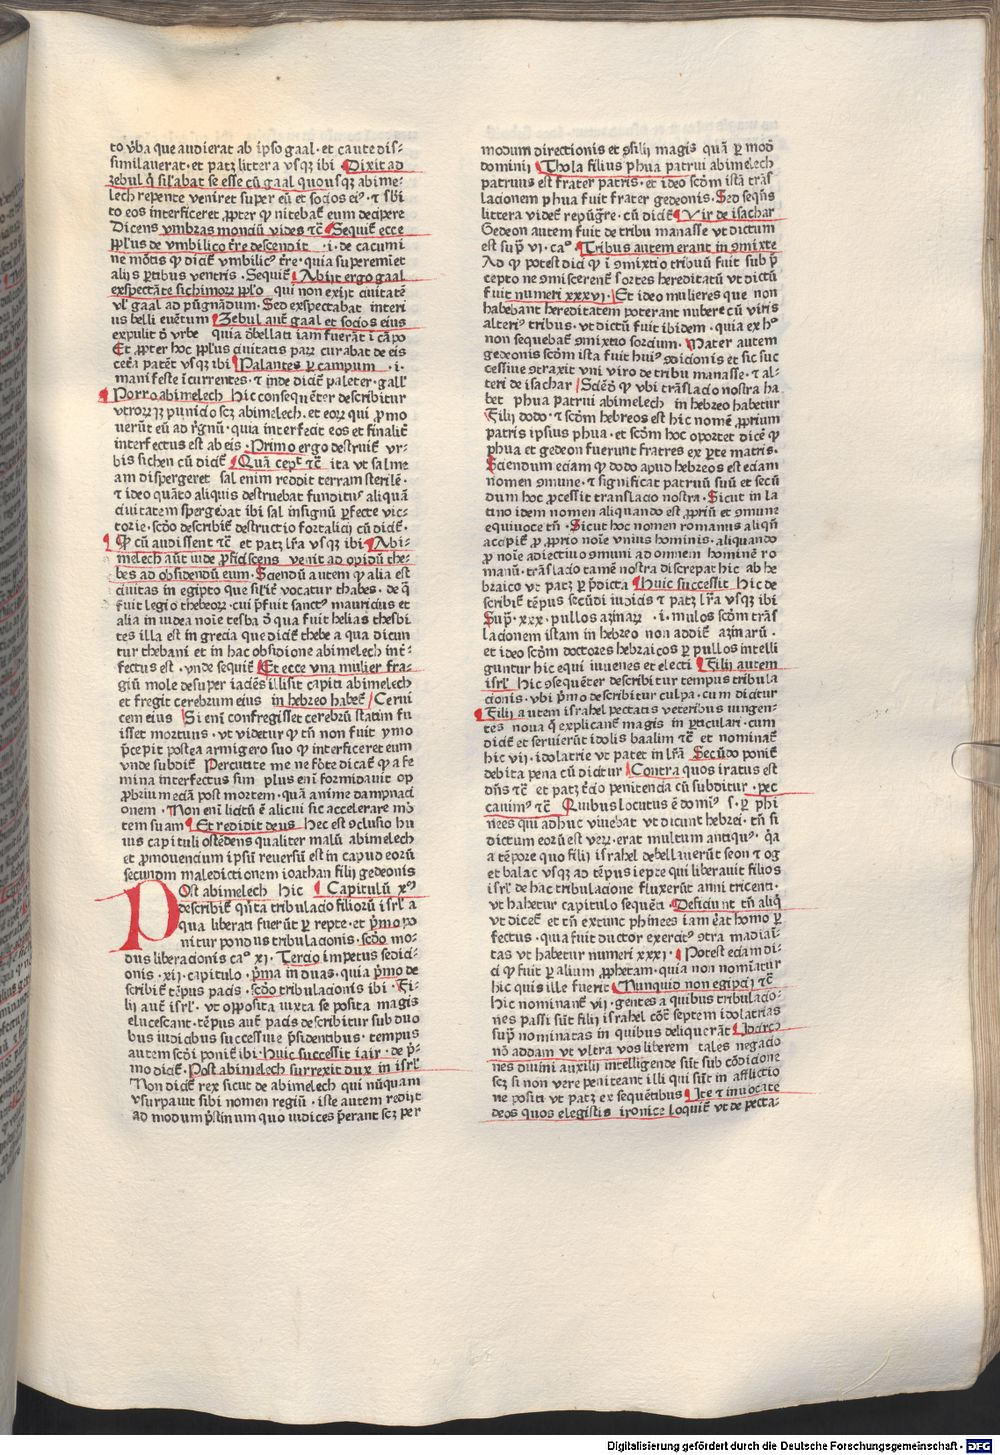 to v̄ba que audierat ab ip̄o gaal · et caute dis⸗
similauerat · et patꝫ littera vsqꝫ ibi · Dixit ad
zebul q̄ sil'abat se esse cū gaal quousqꝫ abime⸗
lech repente veniret super eū et socios eiꝰ · ⁊ s̄bi
to eos interficeret ꝓpter qꝭ nitebat̄ eum decipere
Dicens vmbras monciū vides ⁊c̄ Sequit̄ ecce
ppl'us de vmbilico t̄re descendit · i · de cacumi
ne mōtis qꝭ dicit̄ vmbilicꝰ t̄re · quia supereminet
aliis ꝑtibus ventris · Sequit̄ Abijt ergo gaal
exspectāte sichimoꝝ ppl'o qui non exijt ciuitatē
vl' gaal ad pūgnādum · Sed exspectabat interi
us belli euētum Zebul aut̄ gaal et socios eius
expulit d̄ vrbe quia d̄bellati iam fuerāt ī cāpo
Et ꝓpter hoc ppl'us ciuitatis paꝝ curabat de eis
cet̄a patēt vsqꝫ ibi Palantes ꝑ campum · i ·
manifeste ī currentes · ⁊ īnde dicit̄ paleter · gall'
Porro abimelech hic conseqn̄ter describitur
vtroꝝqꝫ punicio scꝫ abimelech · et eoꝝ qui ꝓmo
uerūt eū ad r̄gnū · quia interfecit eos et finalit̄
interfectus est ab eis · Primo ergo destruit̄ vr⸗
bis sichen cū dicit̄ Quā cep̄t ⁊c̄ ita vt sal me
am dispergeret sal enim reddit terram sterilē ·
⁊ ideo quāto aliquis destruebat funditꝰ aliquā
ciuitatem spergebat ibi sal insignū ꝑfecte vic⸗
torie · scd̄o describit̄ destructio fortalicij cū dicit̄ ·
Qꝭ cū audissent ⁊c̄ et patꝫ lr̄a vsqꝫ ibi Abi⸗
melech aūt inde ꝓficiscens venit ad opidū the⸗
bes ad obsidendū eum · Sciendū autem qꝭ alia est
ciuitas in egipto que sil'it̄ vocatur thabes · de q̄
fuit legio thebeoꝝ · cui p̄fuit sanctꝰ mauricius et
alia in iudea noīe tesba d̄ qua fuit helias thesbi
tes illa est in grecia que dicit̄ thebe a qua dicun
tur thebani et in hac obsidione abimelech int̄⸗
fectus est · vnde sequit̄ Et ecce vna mulier fra⸗
giū mole desuper iaciēs illisit capiti abimelech
et fregit cerebrum eius in hebreo habet̄ Cerui
cem eius Si enī confregisset cerebrū statim fu
isset mortuus · vt videtur qꝭ tn̄ non fuit ymo
p̄cepit postea armigero suo qꝭ interficeret eum
vnde subdit̄ Percutite me ne fōte dicat̄ qꝭ a fe
mina interfectus sim plus enī formidauit op
ꝓbrium eciā post mortem · quā anime dampnaci
onem · Non enī licitū ē alicui sic accelerare mō
tem suam Et redidit deus hec est ꝯclusio hu
ius capituli ostēdens qualiter malū abimelech
et ꝓmouencium ipsū reuersū est in capud eorū
secundm maledictionem ioathan filij gedeonis
Post abimelech hic Capitulū xm̄
describit̄ qn̄ta tribulacio filiorū isrl' a
qua liberati fuerūt ꝑ repte · et p̄mo po
nitur pondus tribulacionis · scd̄o mo⸗
dus liberacionis ca° xj · Tercio impetus sedici⸗
onis · xij · capitulo · p̄ma in duas · quia p̄mo de
scribit̄ tēpus pacis · scd̄o tribulacionis ibi · Fi⸗
lij aut̄ isrl' · vt opposita iuxta se posita magis
elucescant · tēpus aut̄ pacis describitur sub duo
bus iudicibus successiue p̄sidentibus · tempus
autem scd̄i ponit̄ ibi · Huic successit iair · de p̄⸗
mo dicit̄ · Post abimelech surrexit dux in isrl'
Non dicit̄ rex sicut de abimelech qui nūquam
vsurpauit sibi nomen regiū · iste autem redijt
ad modum p̄stinum quo iudices p̄erant scꝫ per
modum directionis et ꝯsilij magis quā ꝑ modū
dominij Thola filius phua patrui abimelech
patruus est frater patris · et ideo scd̄m istā trās
lacionem phua fuit frater gedeonis · Sed seqn̄s
littera videt̄ repūg̃re · cū dicit̄ Vir de isachar
Gedeon autem fuit de tribu manasse vt dictum
est sup̄ vj · ca° · Tribus autem erant in ꝯmixte
Ad qꝭ potest dici qꝭ ī ꝯmixtio tribuū fuit sub p̄
cepto ne ꝯmiscerent̄ sortes hereditatū vt dictū
fuit numeri xxxvj · Et ideo mulieres que non
habebant hereditatem poterant nubere cū viris
alteriꝰ tribus · vt dictū fuit ibidem · quia ex h°
non sequebat̄ ꝯmixtio sorcium · Mater autem
gedeonis scd̄m ista fuit huiꝰ ꝯdicionis et sic suc
cessiue ꝯtraxit vni viro de tribu manasse · ⁊ al⸗
teri de isachar Sciēd̄ qꝭ vbi trāslacio nostra ha
bet phua patrui abimelech in hebreo habetur
Filij dodo · ⁊ scd̄m hebreos est hic nomē ꝓprium
patris ipsius phua · et scd̄m hoc oportet dicē qꝭ
phua et gedeon fuerunt fratres ex ꝑte matris ·
Sciendum eciam qꝭ dodo apud hebreos est eciam
nomen ꝯmune · ⁊ significat patruū suū et secū
dum hoc ꝓcessit translacio nostra · Sicut in la
tino idem nomen aliquando est ꝓpriū et ꝯmune
equiuoce tn̄ · Sicut hoc nomen romanus aliqn̄
accipit̄ ꝓ ꝓprio noīe vnius hominis · aliquando
ꝓ noīe adiectiuo ꝯmuni ad omnem hominē ro
manū · trāslacio tamē nostra discrepat hic ab he
braico vt patꝫ ꝑ p̄dicta Huic successit Hic de
scribit̄ tēpus secūdi iudicis ⁊ patꝫ lr̄a vsqꝫ ibi
Sup̄ · xxx · pullos azinaꝝ · i · mulos scd̄m trās
lacionem istam in hebreo non addit̄ azinarū ·
et ideo scd̄m doctores hebraicos ꝑ pullos intelli
guntur hic equi iuuenes et electi Filij autem
isrl' hic ꝯsequēter describitur tempus tribula
cionis · vbi p̄mo describitur culpa · cum dicitur
Filij autem israhel peccatis veteribus iungen⸗
tes noua q̄ explicant̄ magis in ꝑticulari · cum
dicit̄ et seruierūt idolis baalim ⁊c̄ et nominat̄
hic vij · idolatrie vt patet in lr̄a Secūdo ponit̄
debita pena cū dicitur Contra quos iratus est
dn̄s ⁊c̄ et patꝫ t̄cio penitencia cū subditur · pec
cauimꝰ ⁊c̄ Quibus locutus ē domiꝰ s · ꝑ phi
nees qui adhuc viuebat vt dicunt hebrei · tn̄ si
dictum eorū est veꝝ · erat multum antiquꝰ · q̄a
a tēpore quo filij israhel debellauerūt seon ⁊ og
et balac vsqꝫ ad tēpus iepte qui liberauit filios
isrl' de hac tribulacione fluxerūt anni tricenti ·
vt habetur capitulo sequēti Deficiunt tn̄ aliq̄
vt dicet̄ et tn̄ extunc phinees iam ēat homo ꝑ
fectus · qua fuit ductor exercitꝰ ꝯtra madiaī⸗
tas vt habetur numeri xxxj · Potest eciam di⸗
ci qꝭ fuit ꝑ alium ꝓphetam · quia non nomīatur
hic quis ille fuerit Nunquid non egipcij ⁊c̄
Hic nominant̄ vij · gentes a quibus tribulacio⸗
nes passi sūt filij israhel cōt̄ septem idolatrias
sup̄ nominatas in quibus deliquerāt Idcirco
nō addam vt vltra vos liberem tales negacio
nes diuini auxilij intelligende sūt sub cōdicione
scꝫ si non vere peniteant illi qui sūt in afflictio
ne positi vt patꝫ ex sequētibus Ite ⁊ inuocate
deos quos elegistis ironice loquit̄ vt de pecca⸗
Digitalisierung gefördert durch die Deutsche Forschungsgemeinschaft - DFG